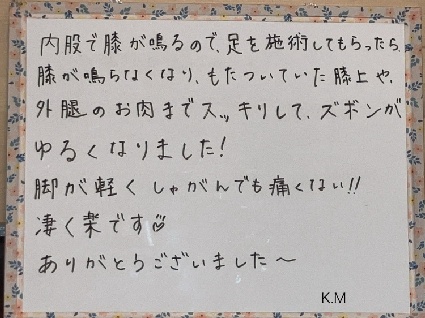 内股で膝が鳴るので、足を施術してもらったら、
膝が鳴らなくなり、もたついていた膝上や、
外腿のお肉までスッキリして、ズボンが
ゆるくなりました!
脚が軽くしゃがんでも痛くない!!
凄く楽です♡
ありがとうございました〜
K.M